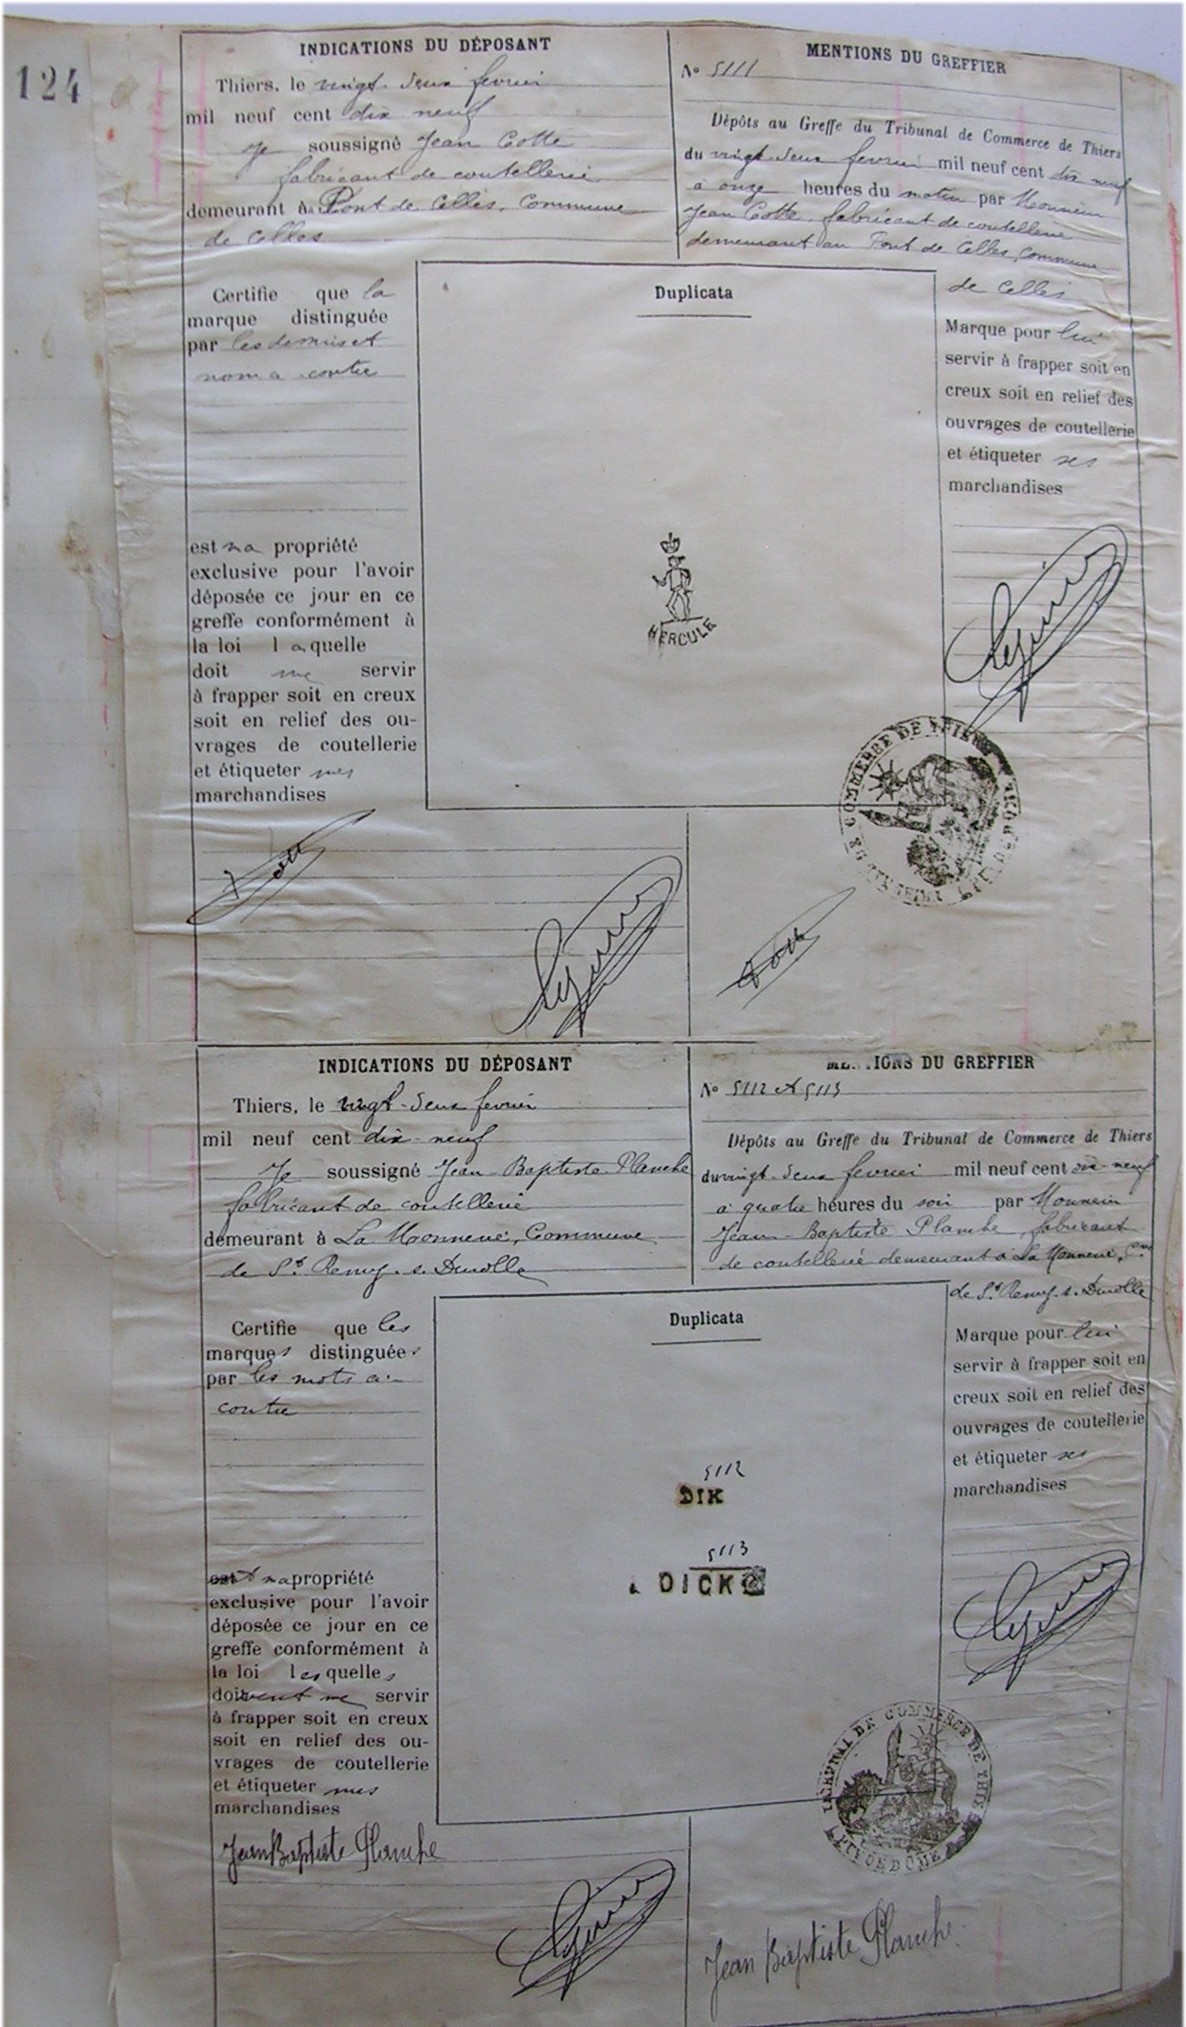 124
INDICATIONS DU DÉPOSANT
Thiers, le vingt-deux fevrier
mil neuf cent dix neuf
Je soussigné Jean Cotte
fabricant de coutellerie
demeurant à Pont de Celles, Commune
de Celles
MENTIONS DU GREFFIER
No 5111
Dépôts au Greffe du Tribunal de Commerce de Thiers
du vingt-deux fevrier mil neuf cent dix neuf
à onze heures du matin par Monsieur
Jean Cotte, fabricant de coutellerie
demeurant au Pont de Celles, Commune
de Celles
Certifie que la
marque distinguée
par les dessins et
nom ci-contre
est ma propriété
exclusive pour l'avoir
déposée ce jour en ce
greffe conformément à
la loi laquelle
doit me servir
à frapper soit en creux
soit en relief des ou-
vrages de coutellerie
et étiqueter mes
marchandises
Duplicata
HERCULE
Marque pour lui
servir à frapper soit en
creux soit en relief des
ouvrages de coutellerie
et étiqueter ses
marchandises
COMMERCE DE THIERS
INDICATIONS DU DÉPOSANT
Thiers, le vingt-deux fevrier
mil neuf cent dix-neuf
Je soussigné Jean-Baptiste Planche
fabricant de coutellerie
demeurant à La Monnerie, Commune
de St Remy s. Durolle
MENTIONS DU GREFFIER
No 5112 et 5113
Dépôts au Greffe du Tribunal de Commerce de Thiers
du vingt-deux fevrier mil neuf cent dix-neuf
à quatre heures du soir par Monsieur
Jean-Baptiste Planche, fabricant
de coutellerie demeurant à La Monnerie, Cne
de St Remy s. Durolle
Certifie que les
marques distinguées
par les mots ci-
contre
est ma propriété
exclusive pour l'avoir
déposée ce jour en ce
greffe conformément à
la loi lesquelles
doivent me servir
à frapper soit en creux
soit en relief des ou-
vrages de coutellerie
et étiqueter mes
marchandises
Jean Baptiste Planche
Duplicata
5112
DIK
5113
DICK
Marque pour lui
servir à frapper soit en
creux soit en relief des
ouvrages de coutellerie
et étiqueter ses
marchandises
TRIBUNAL DE COMMERCE DE THIERS
PUY DE DOME
Jean Baptiste Planche